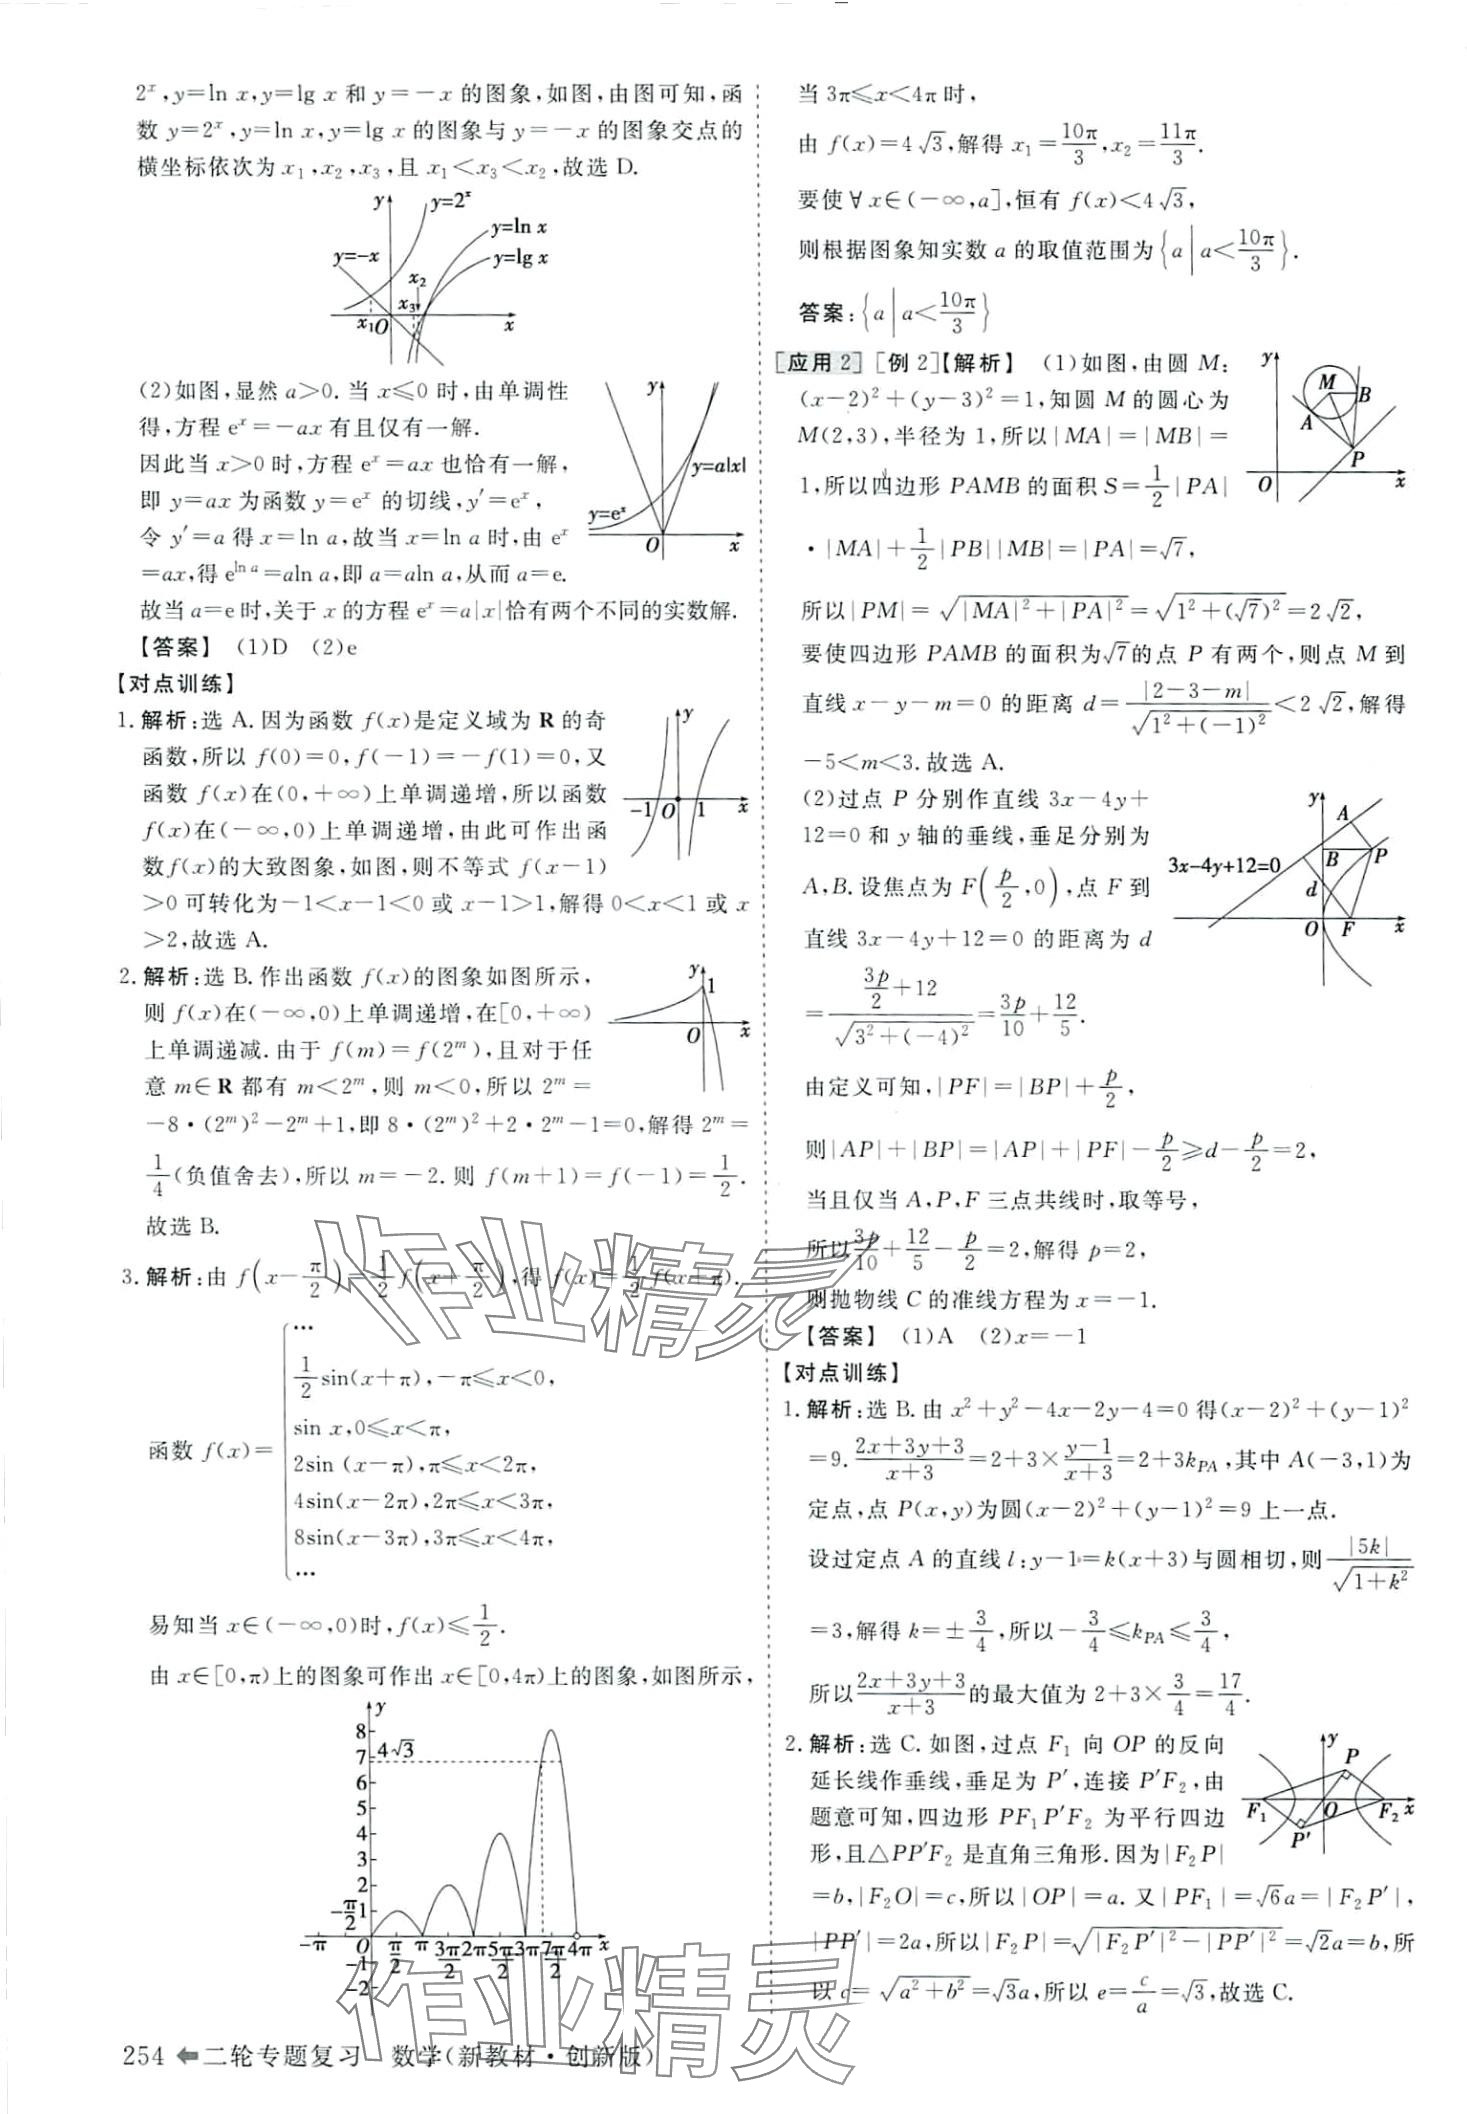 2ˣ,y=ln x,y=lg x 和 y=-x 的图象,如图,由图可知,函
数 y=2ˣ,y=ln x,y=lg x 的图象与 y=-x 的图象交点的
横坐标依次为 x₁,x₂,x₃,且 x₁<x₃<x₂,故选 D.
y
y=2ˣ
y=ln x
y=-x
y=lg x
x₂
x₃
x₁ O x
(2)如图,显然 a>0.当 x⩽0 时,由单调性
得,方程 eˣ=-ax 有且仅有一解.
因此当 x>0 时,方程 eˣ=ax 也恰有一解,
即 y=ax 为函数 y=eˣ 的切线,y′=eˣ,
令 y′=a 得 x=ln a,故当 x=ln a 时,由 eˣ
=ax,得 e^{ln a}=aln a,即 a=aln a,从而 a=e.
y
y=a|x|
y=eˣ
O x
故当 a=e 时,关于 x 的方程 eˣ=a|x|恰有两个不同的实数解.
【答案】 (1)D (2)e
【对点训练】
1.解析:选 A.因为函数 f(x)是定义域为 R 的奇
函数,所以 f(0)=0,f(-1)=-f(1)=0,又
函数 f(x)在(0,+∞)上单调递增,所以函数
f(x)在(-∞,0)上单调递增,由此可作出函
数f(x)的大致图象,如图,则不等式 f(x-1)
>0 可转化为-1<x-1<0 或 x-1>1,解得 0<x<1 或 x
>2,故选 A.
y
-1 O 1 x
2.解析:选 B.作出函数 f(x)的图象如图所示,
则 f(x)在(-∞,0)上单调递增,在[0,+∞)
上单调递减.由于 f(m)=f(2ᵐ),且对于任
意 m∈R 都有 m<2ᵐ,则 m<0,所以 2ᵐ=
-8·(2ᵐ)²-2ᵐ+1,即 8·(2ᵐ)²+2·2ᵐ-1=0,解得 2ᵐ=
1/4(负值舍去),所以 m=-2.则 f(m+1)=f(-1)=1/2.
故选 B.
y
1
O x
3.解析:由 f(x-π/2)=1/2 f(x+π/2),得 f(x)=1/2 f(x+π).
函数 f(x)={
…
1/2 sin(x+π),-π⩽x<0,
sin x,0⩽x<π,
2sin (x-π),π⩽x<2π,
4sin(x-2π),2π⩽x<3π,
8sin(x-3π),3π⩽x<4π,
…
易知当 x∈(-∞,0)时,f(x)⩽1/2.
由 x∈[0,π)上的图象可作出 x∈[0,4π)上的图象,如图所示,
y
8
7
4√3
6
5
4
3
2
1
-π -π/2 O π/2 π 3π/2 2π 5π/2 3π 7π/2 4π x
-1
-2
254 二轮专题复习 数学(新教材·创新版)
当 3π⩽x<4π 时,
由 f(x)=4√3,解得 x₁=10π/3,x₂=11π/3.
要使∀x∈(-∞,a],恒有 f(x)<4√3,
则根据图象知实数 a 的取值范围为{a|a<10π/3}.
答案:{a|a<10π/3}
[应用2] [例 2]【解析】 (1)如图,由圆 M:
(x-2)²+(y-3)²=1,知圆 M 的圆心为
M(2,3),半径为 1,所以|MA|=|MB|=
1,所以四边形 PAMB 的面积 S=1/2|PA|
·|MA|+1/2|PB||MB|=|PA|=√7,
y
M
B
A
P
O x
所以|PM|=√(|MA|²+|PA|²)=√(1²+(√7)²)=2√2,
要使四边形 PAMB 的面积为√7的点 P 有两个,则点 M 到
直线 x-y-m=0 的距离 d=|2-3-m|/√(1²+(-1)²)<2√2,解得
-5<m<3.故选 A.
(2)过点 P 分别作直线 3x-4y+
12=0 和 y 轴的垂线,垂足分别为
A,B.设焦点为 F(p/2,0),点 F 到
直线 3x-4y+12=0 的距离为 d
=(3p/2+12)/√(3²+(-4)²)=3p/10+12/5.
y
A
B P
3x-4y+12=0
d
O F x
由定义可知,|PF|=|BP|+p/2,
则|AP|+|BP|=|AP|+|PF|-p/2⩾d-p/2=2,
当且仅当 A,P,F 三点共线时,取等号,
所以3p/10+12/5-p/2=2,解得 p=2,
则抛物线 C 的准线方程为 x=-1.
【答案】 (1)A (2)x=-1
【对点训练】
1.解析:选 B.由 x²+y²-4x-2y-4=0 得(x-2)²+(y-1)²
=9.(2x+3y+3)/(x+3)=2+3×(y-1)/(x+3)=2+3k_{PA},其中 A(-3,1)为
定点,点 P(x,y)为圆(x-2)²+(y-1)²=9 上一点.
设过定点 A 的直线 l:y-1=k(x+3)与圆相切,则|5k|/√(1+k²)
=3,解得 k=±3/4,所以-3/4⩽k_{PA}⩽3/4,
所以(2x+3y+3)/(x+3)的最大值为 2+3×3/4=17/4.
2.解析:选 C.如图,过点 F₁ 向 OP 的反向
延长线作垂线,垂足为 P′,连接 P′F₂,由
题意可知,四边形 PF₁P′F₂ 为平行四边
形,且△PP′F₂ 是直角三角形.因为|F₂P|
=b,|F₂O|=c,所以|OP|=a.又|PF₁|=√6a=|F₂P′|,
|PP′|=2a,所以|F₂P|=√(|F₂P′|²-|PP′|²)=√2a=b,所
以 c=√(a²+b²)=√3a,所以 e=c/a=√3,故选 C.
y
P
F₁ O F₂ x
P′
作业精灵
作业精灵